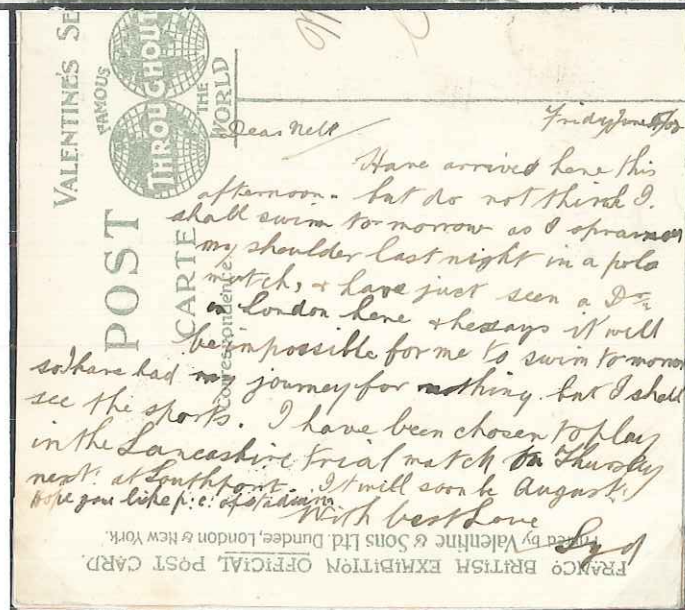 VALENTINE'S SE
FAMOUS
THROUGHOUT
THE
WORLD
POST
CARTE
Correspondence.
Friday June
Dear Nell
Have arrived here this
afternoon. but do not think I.
shall swim to-morrow as I sprained
my shoulder last night in a polo
match, & have just seen a Dr.
in London here & he says it will
be impossible for me to swim tomorrow
so I have had my journey for nothing. but I shall
see the sports. I have been chosen to play
in the Lancashire trial match on Thursday
next. at Southport. It will soon be August.
Hope you like p.c. of stadium
With best love
Syd
Printed by Valentine & Sons Ltd. Dundee, London & New York.
FRANCO BRITISH EXHIBITION OFFICIAL POST CARD.